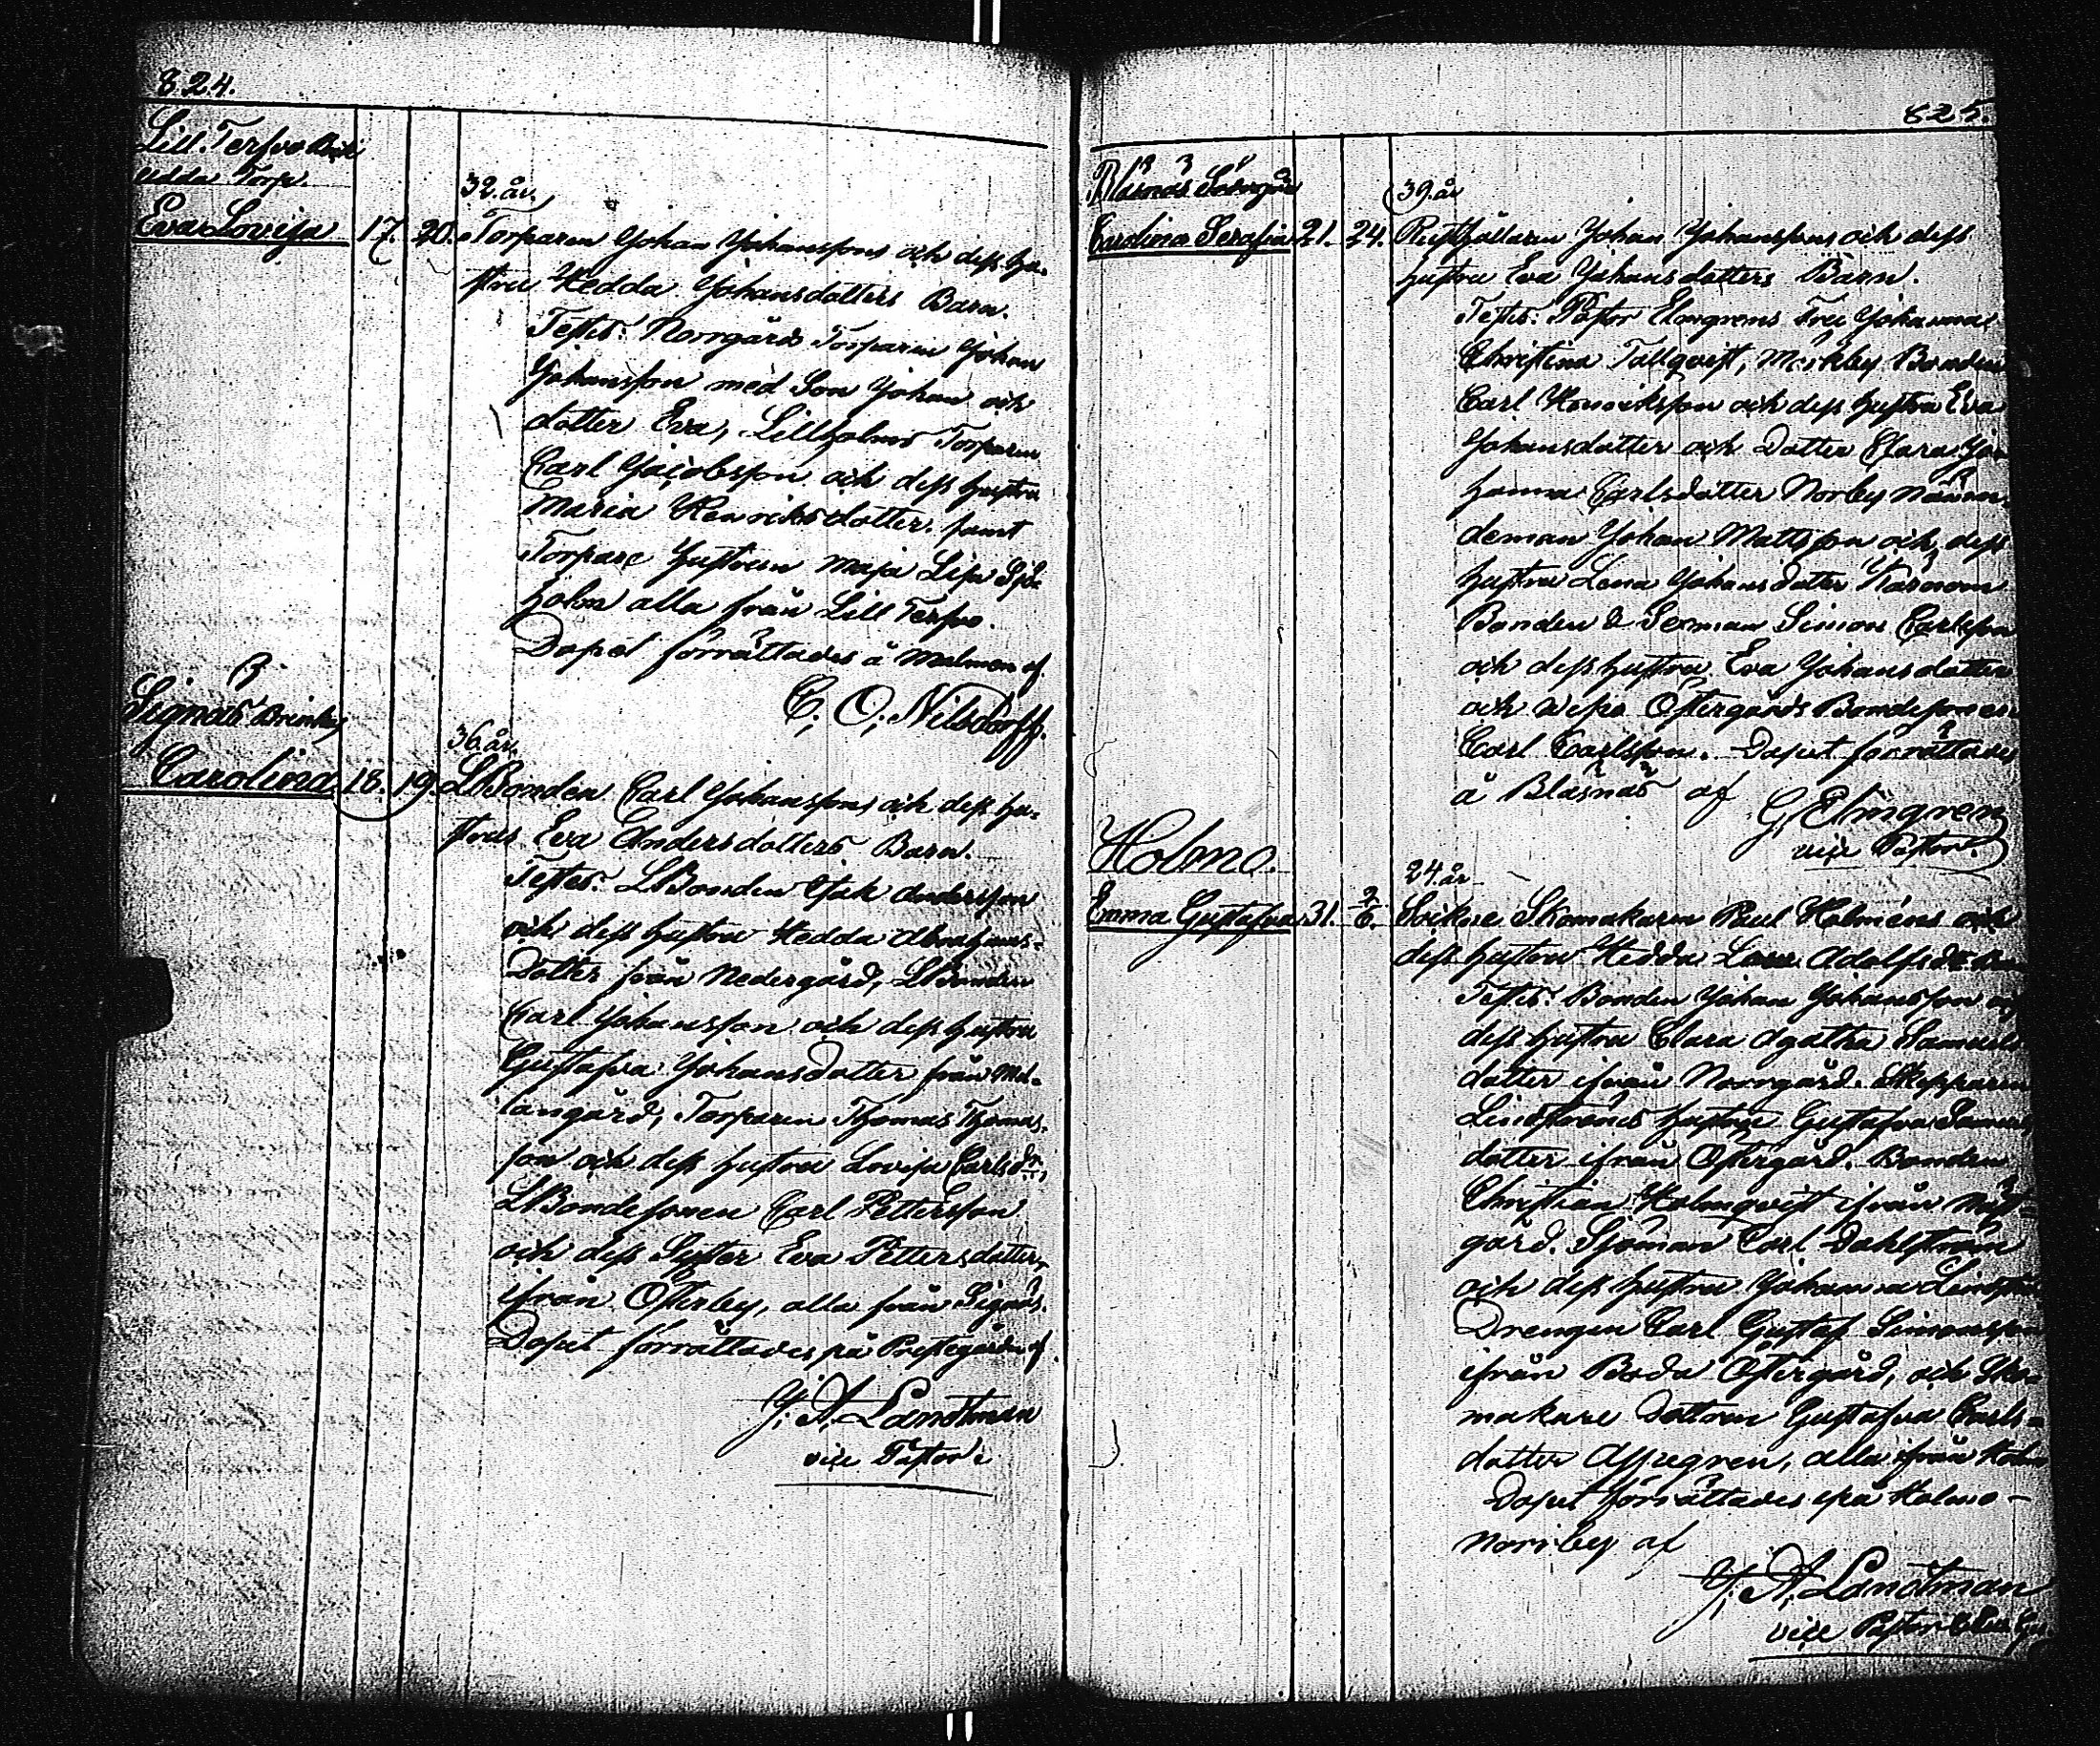 824.
Lill Terfvo
Hedda Torp.
32. år.
Eva Lovisa 17. 20. Torparen Johan Johanssons och dess hu-
stru Hedda Johansdotters Barn.
Testes: Norrgårds Torparen Johan
Johansson med Son Johan och
dotter Eva, Lillholms Torparen
Carl Jacobsson och dess hustru
Maria Henriksdotter. samt
Torpare hustrun Maja Lisa
holm alla från Lill Terfvo.
Dopet förrättades å Malmen af
C. O. Nilsdorff.
Signäs
36. år.
Carolina 18. 19. LBonden Carl Johanssons och dess hu-
strus Eva Andersdotters Barn.
Testes: LBonden Isak Andersson
och dess hustru Hedda Abrahams-
dotter från Nedergård, LBonden
Carl Johansson och dess hustru
Gustafva Johansdotter från Mel-
langård, Torparen Thomas Thomas-
son och dess hustru Lovisa Carlsdr.,
LBondesonen Carl Pettersson
och dess Syster Eva Pettersdotter,
ifrån Österby, alla från Signäs.
Dopet förrättades på Prestegården af
J. A. Landtman
vice Pastor
825.
Blåsnäs
39. år
Carolina Serafia 21. 24. Rusthållaren Johan Johanssons och dess
hustru Eva Johansdotters Barn.
Testes: Pastor Elmgrens Fru Johanna
Christina Tallqvist, Mörkby Bonden
Carl Henriksson och dess hustru Eva
Johansdotter och Dotter Clara Jo
hanna Carlsdotter Norrby Nämn
deman Johan Mattsson och dess
hustru Lena Johansdotter
Bonden & Sexman Simon Carlsson
och dess hustru Eva Johansdotter
och Östergårds Bondesonen
Carl Carlsson. Dopet förrättades
å Blåsnäs af G. Elmgren
vice Pastor.
Holmo.
24. år
Emma Gustafva 31. 2/6. Skomakaren Paul Holméns och
dess hustru Hedda Lovisa Adolfsdr
Testes: Bonden Johan Johansson
dess hustru Clara Agatha Samuels
dotter ifrån Norrgård. Skepparen
Lindströms hustru Gustafva Samuels
dotter ifrån Östergård. Bonden
Christian Holmqvist ifrån
gård. Sjöman Carl Dahlström
och dess hustru Johanna
Drengen Carl Gustaf Simonsson
ifrån Boda Östergård, och Sko-
makare dottren Gustafva Carls-
dotter alla ifrån Holmo
Dopet förrättades på Holmo-
Norrby af
J. A. Landtman
vice Pastor